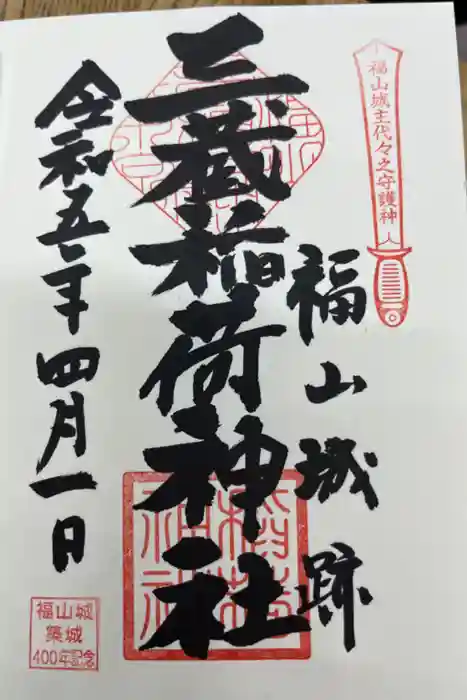 福山城主代々之守護神
福山城跡
三蔵稲荷神社
令和五年四月一日
福山城
築城
400年記念